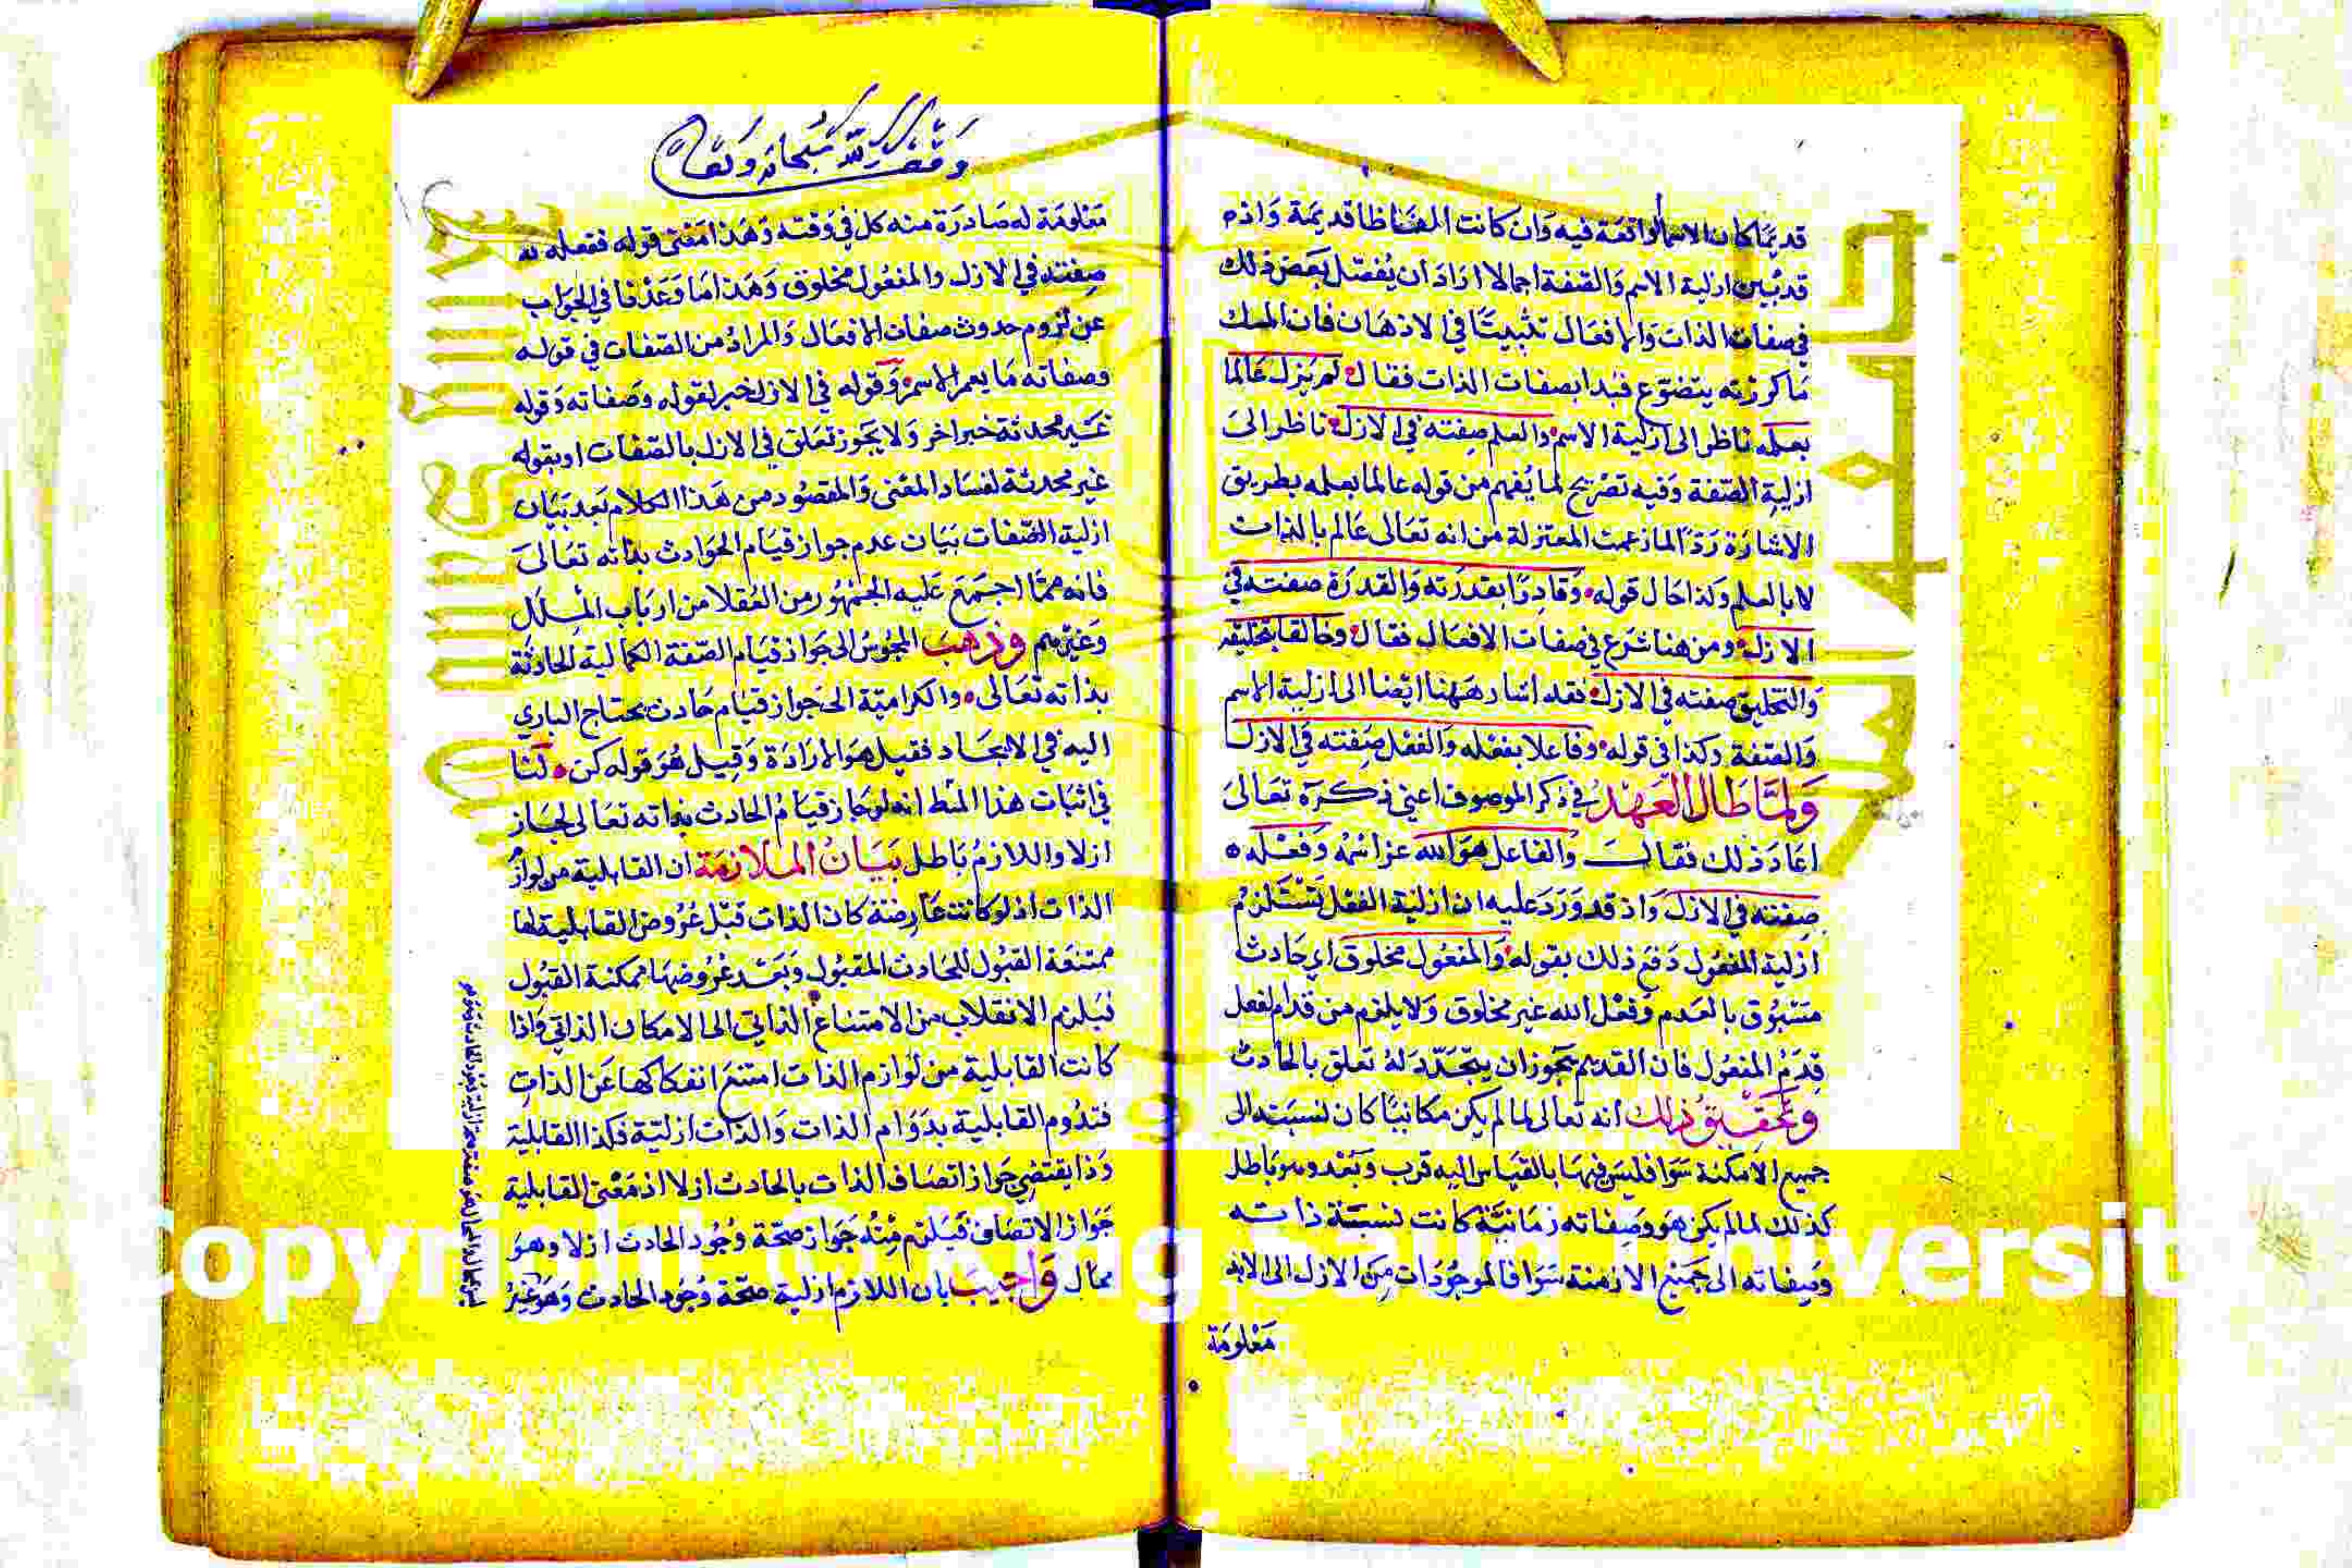 قديمًا كان الاسم واقعة فيه وان كانت الفاظا قديمة واذ
قد بُيّن ازلية الاسم والصفة اجمالا اراد ان يُفصّل بعض ذلك
في صفات الذات والافعال تثبيتًا في الاذهان فان المسك
ما كررته يتضوّع فبدا بصفات الذات فقال لم يزل عالما
بعلمه ناظر الى ازلية الاسم والعلم صفته في الازل ناظر الى
ازلية الصفة وفيه تصريح لما يُفهم من قوله عالما بعلمه بطريق
الاشارة رَدّا لما زعمت المعتزلة من انه تعالى عالم بالذات
لا بالعلم ولذا حال قوله وقادرًا بقدرته والقدرة صفته في
الازل ومن هنا شرع في صفات الافعال فقال وخالقا بتخليقه
والتخليق صفته في الازل فقد اشار ههنا ايضا الى ازلية الاسم
والصفة وكذا في قوله وفاعلا بفعله والفعل صفته في الازل
ولمّا طال العهد في ذكر الموصوف اعني ذكره تعالى
اعاد ذلك فقال والفاعل هو الله عز اسمُه وفعله
صفته في الازل واذ قد وَرَدَ عليه ان ازلية الفعل تستلزم
ازلية المفعول دفع ذلك بقوله والمفعول مخلوق اي حادث
مسبوق بالعدم وفعل الله غير مخلوق ولا يلزم من قدم الفعل
قِدَمُ المفعول فان القديم يجوز ان يتجدّد له تعلق بالحادث
وتحقيق ذلك انه تعالى لما لم يكن مكانيًا كان نسبته الى
جميع الامكنة سَوا فليس فيها بالقياس اليه قرب وبُعد وهو باطل
كذلك لما لم يكن هو وصفاته زمانيّة كانت نسبة ذاته
وصفاته الى جميع الازمنة سَوا فالموجودات من الازل الى الابد
معلومة
وقف لله سبحانه وتعالى
معلومة له صادرة منه كل في وقته وهذا معنى قوله ففعله
صفته في الازل والمفعول مخلوق وهذا ما وَعَدْنا في الجواب
عن لزوم حدوث صفات الافعال والمرادُ من الصفات في قوله
وصفاته ما يعم الاسم وقوله في الازل خبر لقوله وصفاته وقوله
غير محدثة خبر اخر ولا يجوز تعلق في الازل بالصفات او بقوله
غير محدثة لفساد المعنى والمقصود من هذا الكلام بعد بيان
ازلية الصفات بيان عدم جواز قيام الحوادث بذاته تعالى
فانه ممّا اجتمَعَ عليه الجمهور من العُقلا من ارباب الملل
وغيرهم وذهب المجوس الى جواز قيام الصفة الكمالية الحادثة
بذاته تعالى والكراميّة الى جواز قيام حادث يحتاج الباري
اليه في الايجاد فقيل هو الارادة وقيل هُوَ قوله كن لنا
في اثبات هذا المط انه لو جاز قيام الحادث بذاته تعالى لجاز
ازلا واللازم باطل بيان الملازمة ان القابلية من لوازم
الذات اذ لو كانت عارضة كان الذات قبل عُروض القابلية لها
ممتنعة القبول للحادث المقبول وبَعْد عُروضها ممكنة القبول
فيلزم الانقلاب من الامتناع الذاتي الى الامكان الذاتي واذا
كانت القابلية من لوازم الذات امتنع انفكاكها عن الذات
فتدُوم القابلية بدوام الذات والذات ازليّة فكذا القابلية
وذا يقتضي جواز اتصاف الذات بالحادث ازلا اذ معنى القابلية
جواز الاتصاف فيلزم منهُ جواز صحّة وجُود الحادث ازلا وهو
محال واجيب بان اللازم ازلية صحّة وُجُود الحادث وهو غير
جامعة الملك سعود
Copyright © King Saud University